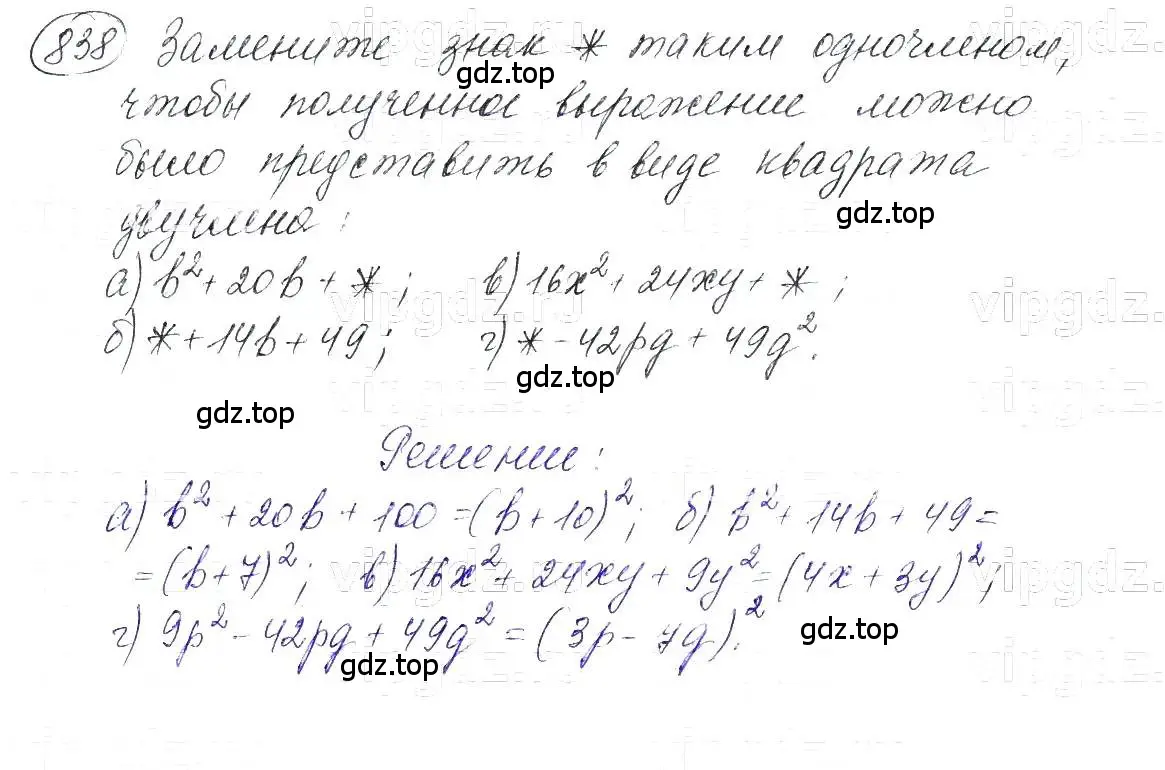 838 Замените знак * таким одночленом,
чтобы полученное выражение можно
было представить в виде квадрата
двучлена:
а) b² + 20b + *; в) 16x² + 24xy + *;
б) * + 14b + 49; г) * - 42pq + 49q².
Решение:
а) b² + 20b + 100 = (b + 10)²; б) b² + 14b + 49 =
= (b + 7)²; в) 16x² + 24xy + 9y² = (4x + 3y)²;
г) 9p² - 42pq + 49q² = (3p - 7q)².
gdz.top
gdz.top
gdz.top
gdz.top
gdz.top
gdz.top
vipgdz.ru